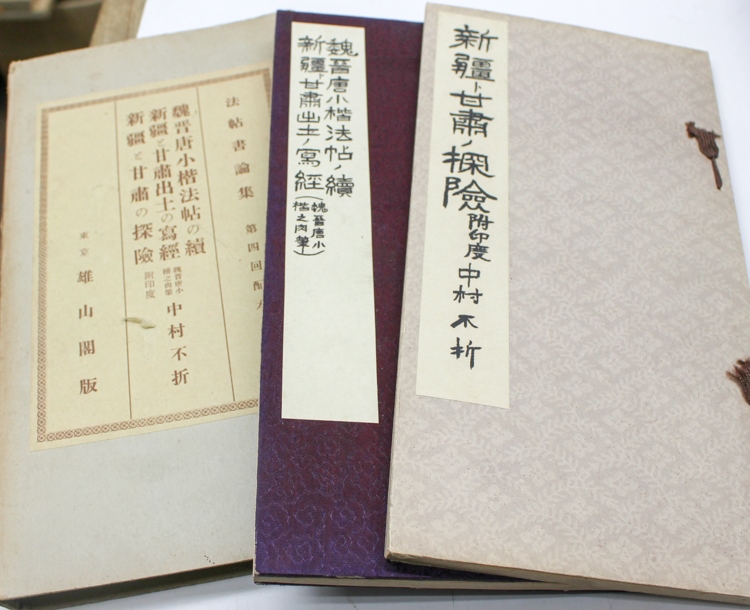 法帖書論集 第四回配
魏晉唐小楷法帖の續
新疆と甘肅出土の寫經
魏晉唐小
楷之肉筆
新疆と甘肅の探險
附印度
中村不折
東京 雄山閣版
魏晉唐小楷法帖ノ續
新疆ト甘肅出土ノ寫經
(魏晉唐小
楷之肉筆)
新疆ト甘肅ノ探險 附印度 中村不折